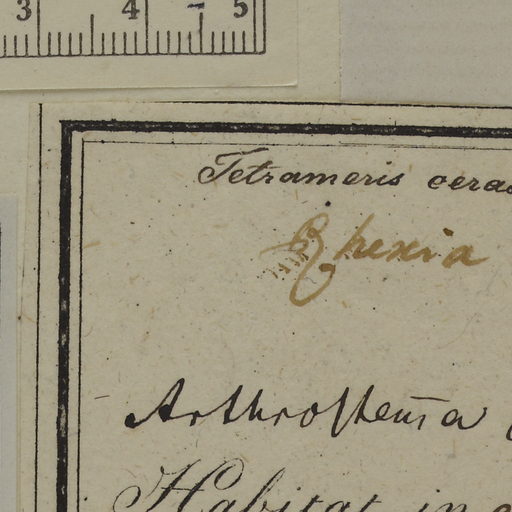 3 4 5
Tetrameris
Rhexia
Arthrostema
Habitat in